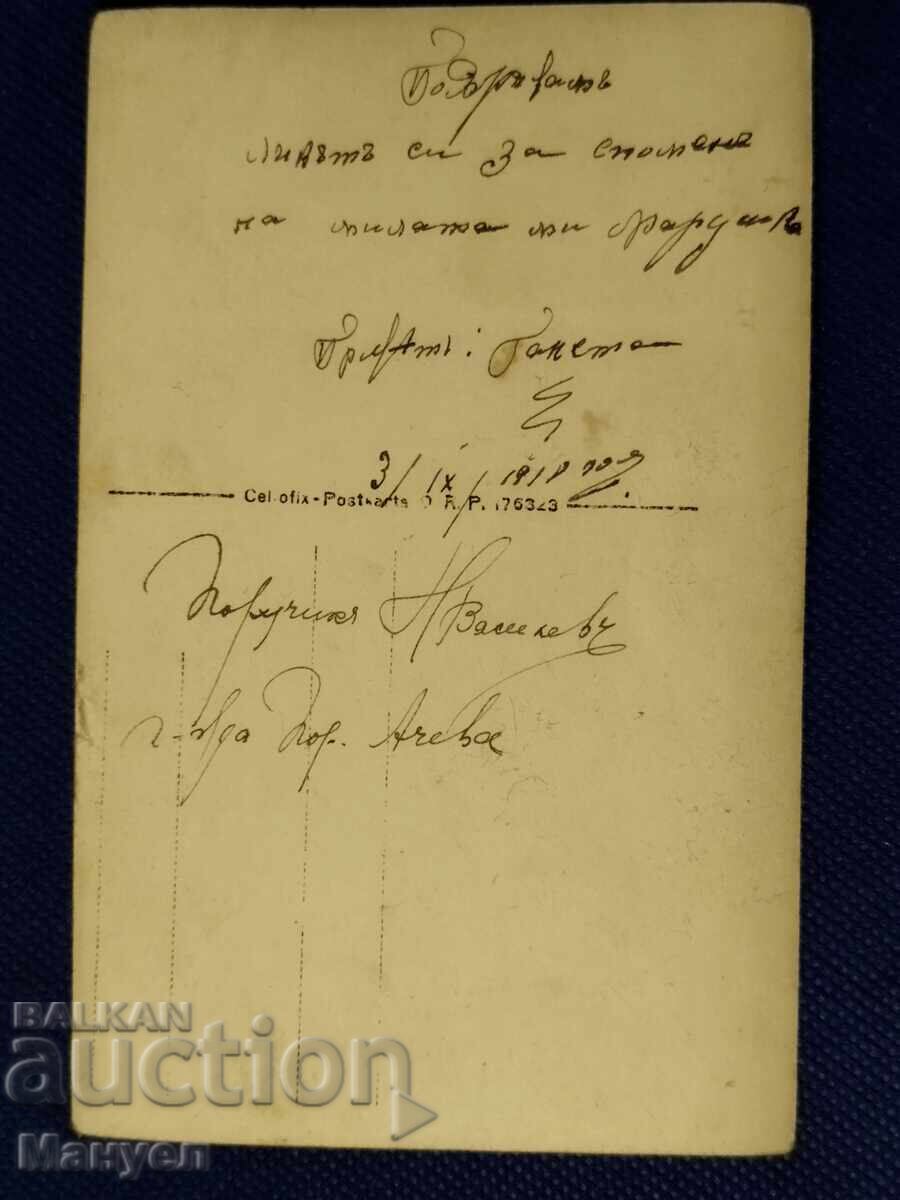 Подарявамъ
ликътъ си за споменъ
на милата ми
3/IX/1918 год.
Cellofix-Postkarte D. R. P. 176323
Поручикъ Н Василевъ
г-жда Пор. Ачева
BALKAN
auction
Мануел